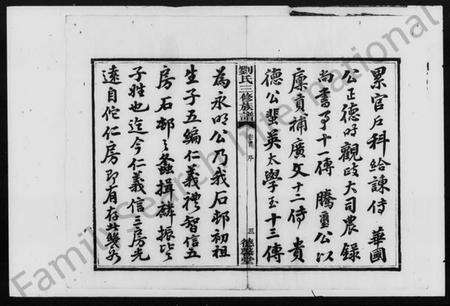 累官戶科給諫侍 華國
公正德時觀政大司農錄
尚書事十一傳 騰蛋公以
廩貢補廣文十二傳 貴
德公蜚英太學至十三傳
劉氏三修族譜
序
三
為永明公乃我石邨初祖
生子五編仁義禮智信五
房石邨之螽揖麟振皆
子姓也迄今仁義信三房先
遠自佗仁房即有存此幾
FamilySearch International